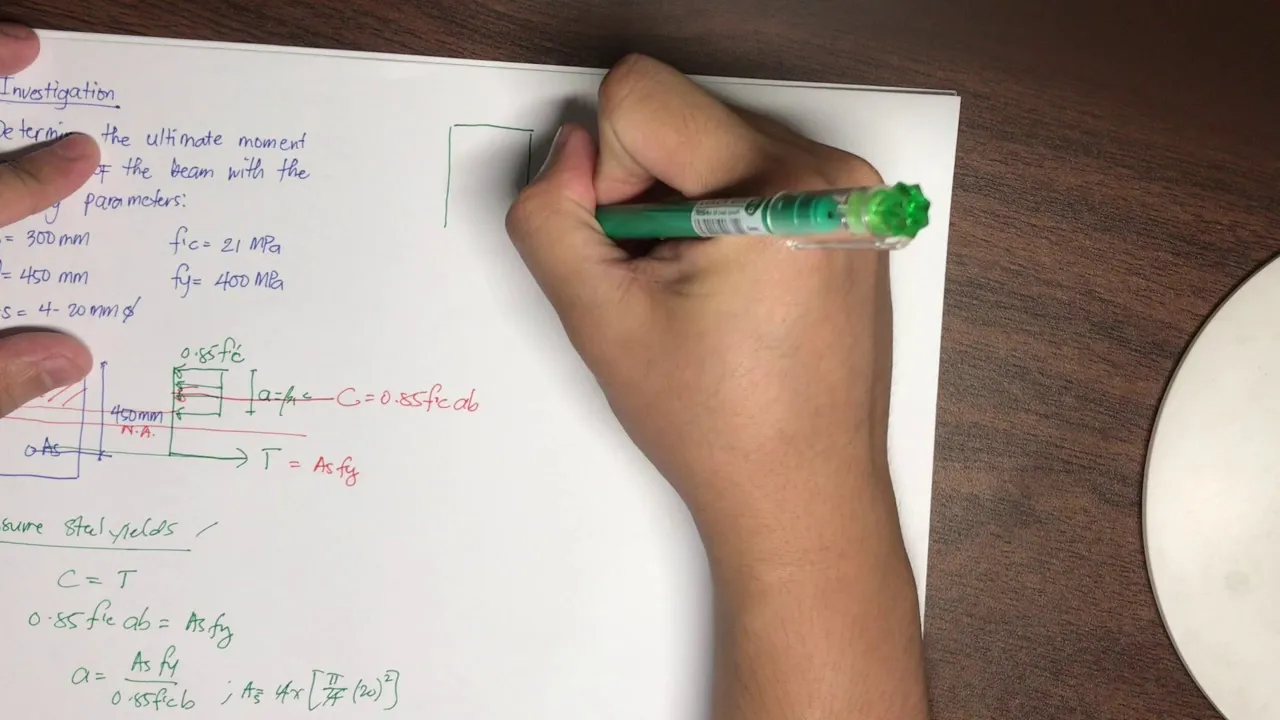 Investigation
Determine the ultimate moment
of the beam with the
parameters:
= 300 mm
f'c = 21 MPa
= 450 mm
fy = 400 MPa
s = 4 - 20 mm ϕ
0.85f'c
C = 0.85f'c ab
450mm
N.A.
As
T = As fy
sume steel yields
C = T
0.85 f'c ab = As fy
a = As fy / 0.85f'c b ; As = 4 x [π/4 (20)²]